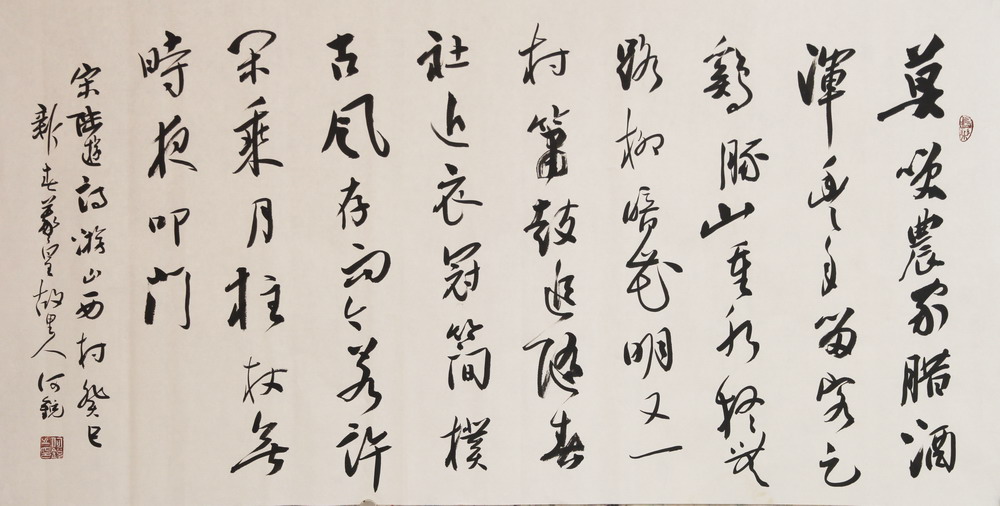 莫笑農家腊酒
渾豐年留客足
鷄豚山重水疑無
路柳暗花明又一
村簫鼓追隨春
社近衣冠簡樸
古風存而今若許
閑乘月柱杖無
時夜叩門
宋陸遊詩游山西村癸巳
新春羲皇故里人何銳